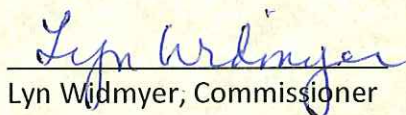 Lyn Widmyer
Lyn Widmyer, Commissioner